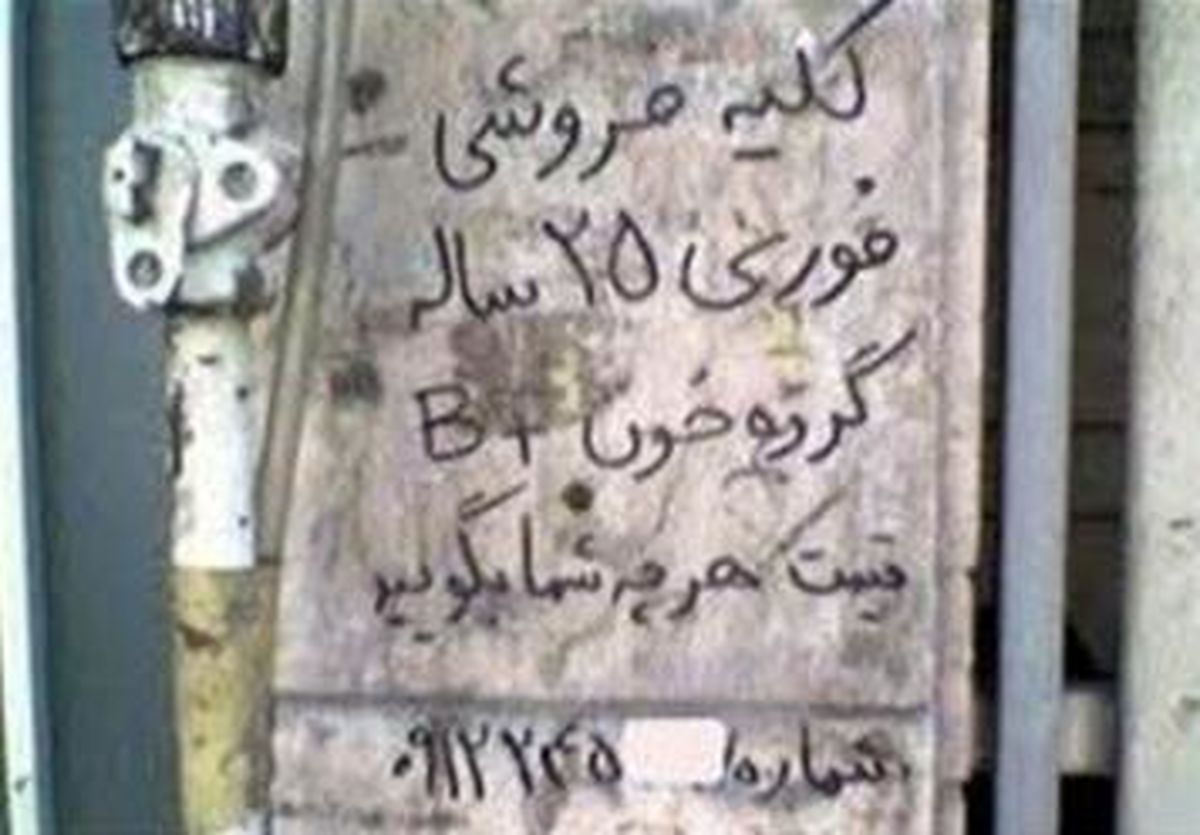 کلیه فروشی
فوری ۲۵ ساله
گروه خون B+
قیمت هر چه شما بگویید
شماره/ ۰۹۱۲۲۴۵